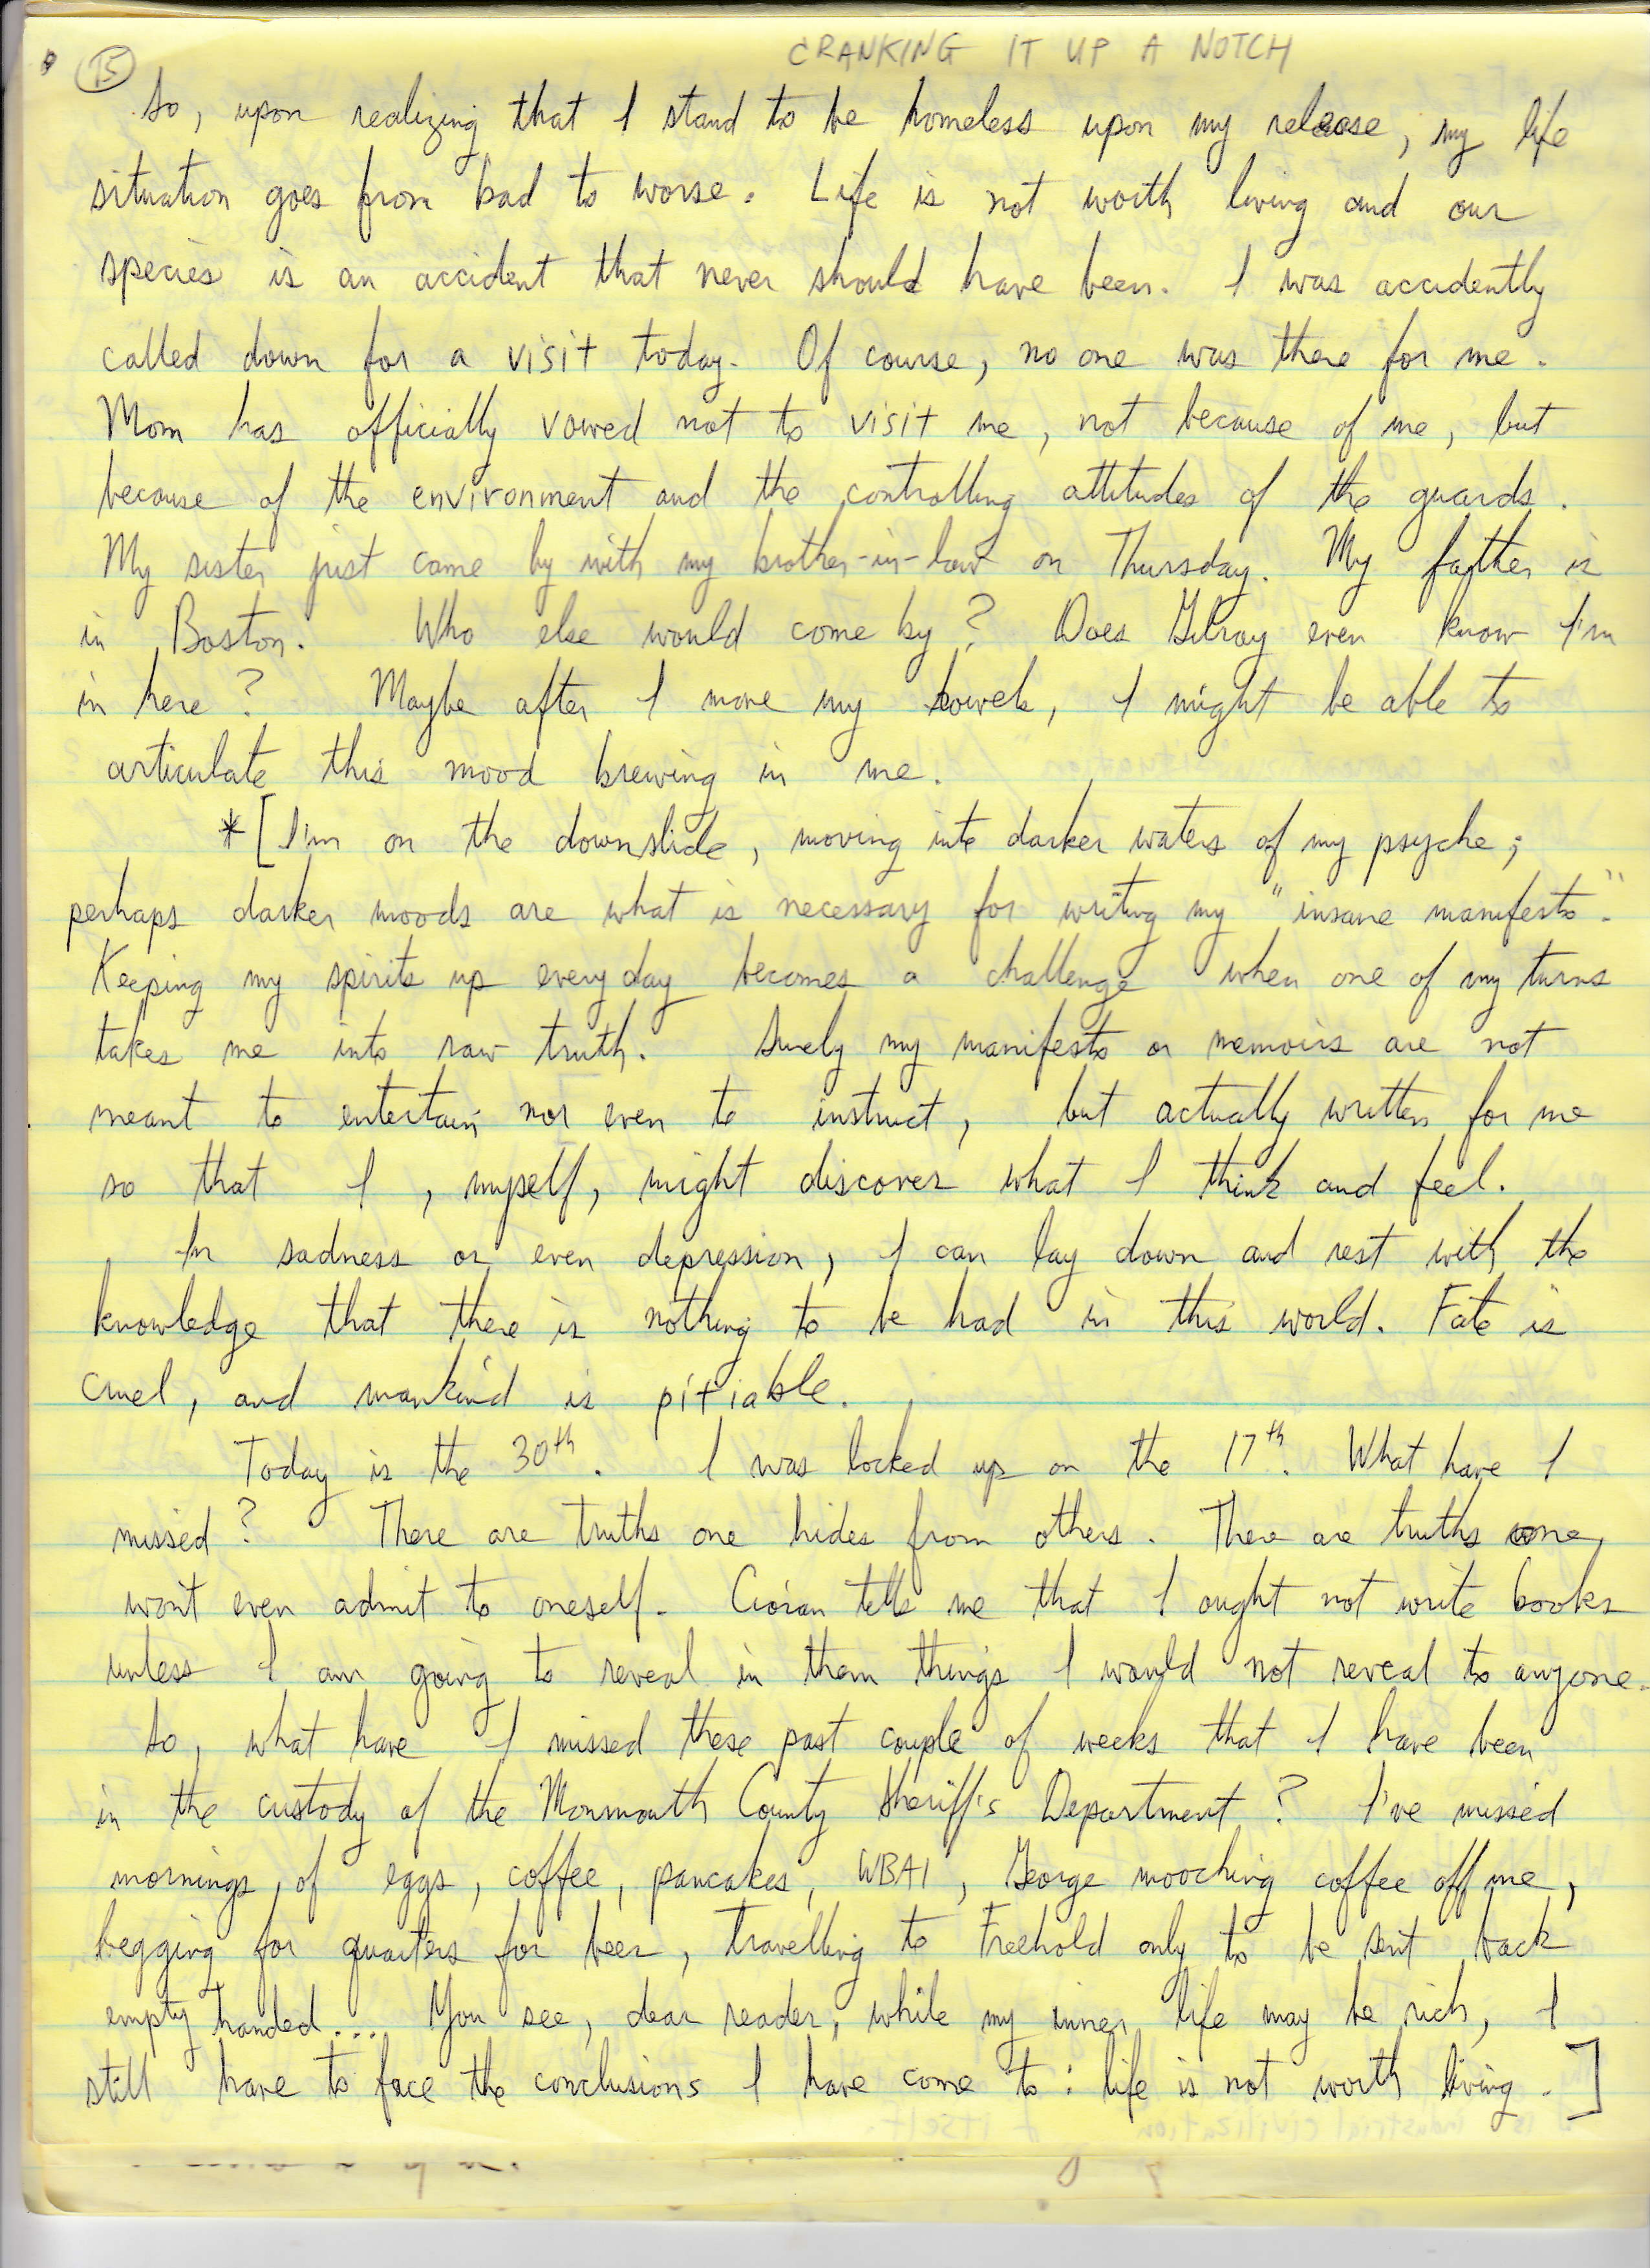 CRANKING IT UP A NOTCH
15
So, upon realizing that I stand to be homeless upon my release, my life
situation goes from bad to worse. Life is not worth living and our
species is an accident that never should have been. I was accidently
called down for a visit today. Of course, no one was there for me.
Mom has officially vowed not to visit me, not because of me, but
because of the environment and the controlling attitudes of the guards.
My sister just came by with my brother-in-law on Thursday. My father is
in Boston. Who else would come by? Does Gilroy even know I'm
in here? Maybe after I move my bowels, I might be able to
articulate this mood brewing in me.
*[I'm on the downslide, moving into darker waters of my psyche;
perhaps darker moods are what is necessary for writing my "insane manifesto".
Keeping my spirits up every day becomes a challenge when one of my turns
takes me into raw truth. Surely my manifesto or memoirs are not
meant to entertain nor even to instruct, but actually written for me
so that I, myself, might discover what I think and feel.
In sadness or even depression, I can lay down and rest with the
knowledge that there is nothing to be had in this world. Fate is
cruel, and mankind is pitiable.
Today is the 30th. I was locked up on the 17th. What have I
missed? There are truths one hides from others. There are truths one
won't even admit to oneself. Cioran tells me that I ought not write books
unless I am going to reveal in them things I would not reveal to anyone.
So, what have I missed these past couple of weeks that I have been
in the custody of the Monmouth County Sheriff's Department? I've missed
mornings of eggs, coffee, pancakes, WBAI, George mooching coffee off me,
begging for quarters for beer, travelling to Freehold only to be sent back
empty handed... You see, dear reader, while my inner life may be rich, I
still have to face the conclusions I have come to: life is not worth living.]